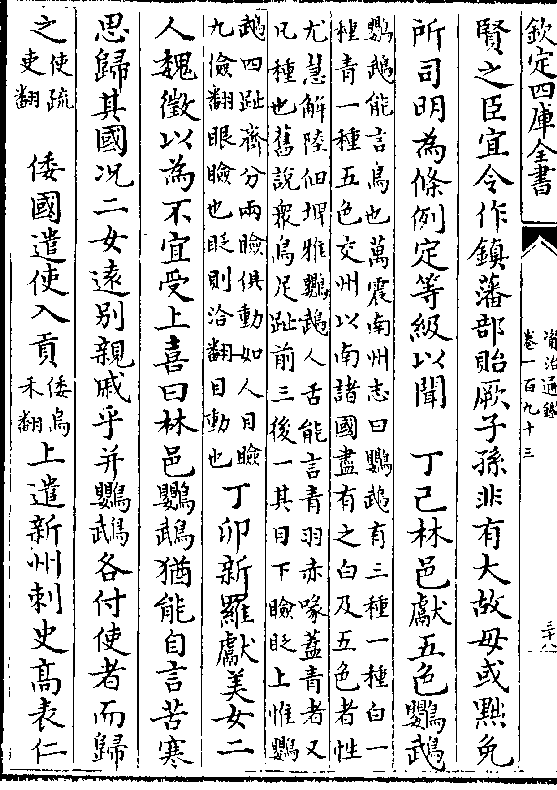 欽定四庫全書
資治通鑑
卷一百九十三
三十八
賢之臣宜令作鎮藩部貽厥子孫非有大故毋或黜免
所司明為條例定等級以聞　丁己林邑獻五色鸚鵡
鸚鵡能言鳥也萬震南州志曰鸚鵡有三種一種白一
種青一種五色交州以南諸國盡有之白及五色者性
尤慧解陸佃埤雅鸚鵡人舌能言青羽赤喙葢青者又
凡種也舊說衆鳥足趾前三後一其目下瞼眨上惟鸚
鵡四趾齊分兩瞼俱動如人目瞼
九儉翻眼瞼也眨則洽翻目動也丁卯新羅獻美女二
人魏徵以為不宜受上喜曰林邑鸚鵡猶能自言苦寒
思歸其國况二女遠别親戚乎并鸚鵡各付使者而歸
之使疏吏翻　倭國遣使入貢倭烏禾翻上遣新州刺史髙表仁